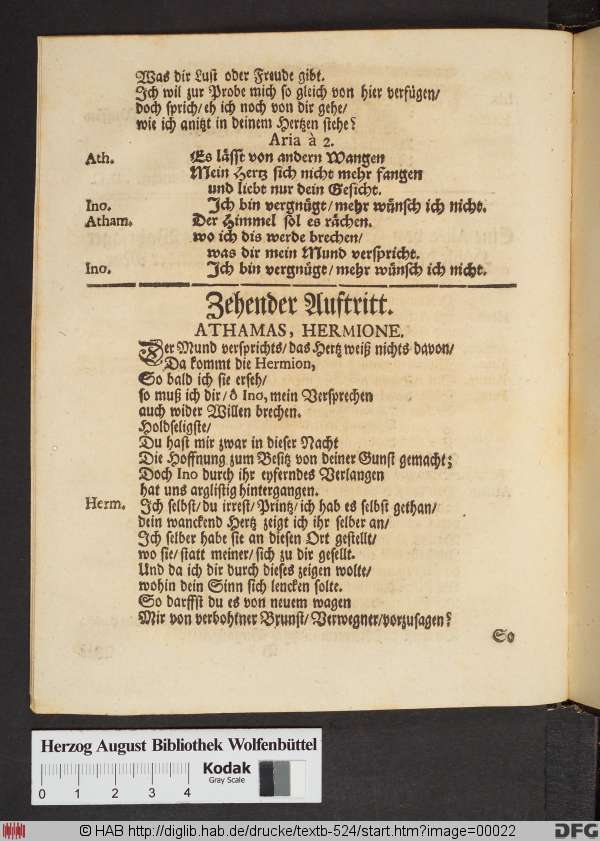 Was dir Lust oder Freude gibt.
Ich wil zur Probe mich so gleich von hier verfügen/
doch sprich/ eh ich noch von dir gehe/
wie ich anitzt in deinem Hertzen stehe?
Aria à 2.
Ath. Es lässt von andern Wangen
Mein Hertz sich nicht mehr fangen
und liebt nur dein Gesicht.
Ino. Ich bin vergnügt/ mehr wünsch ich nicht.
Atham. Der Himmel sol es rächen.
wo ich dis werde brechen/
was dir mein Mund verspricht.
Ino. Ich bin vergnügt/ mehr wünsch ich nicht.
Zehender Auftritt.
ATHAMAS, HERMIONE.
Der Mund versprichts/ das Hertz weiß nichts davon/
Da kommt die Hermion,
So bald ich sie erseh/
so muß ich dir/ ô Ino, mein Versprechen
auch wider Willen brechen.
Holdseligste/
Du hast mir zwar in dieser Nacht
Die Hoffnung zum Besitz von deiner Gunst gemacht;
Doch Ino durch ihr eyferndes Verlangen
hat uns arglistig hintergangen.
Herm. Ich selbst/ du irrest/ Printz/ ich hab es selbst gethan/
dein wanckend Hertz zeigt ich ihr selber an/
Ich selber habe sie an diesen Ort gestellt/
wo sie/ statt meiner/ sich zu dir gesellt.
Und da ich dir durch dieses zeigen wolte/
wohin dein Sinn sich lencken solte.
So darffst du es von neuem wagen
Mir von verbohtner Brunst/ Verwegner/ vorzusagen?
So
Herzog August Bibliothek Wolfenbüttel
0 1 2 3 4 Kodak
Gray Scale
© HAB http://diglib.hab.de/drucke/textb-524/start.htm?image=00022
DFG